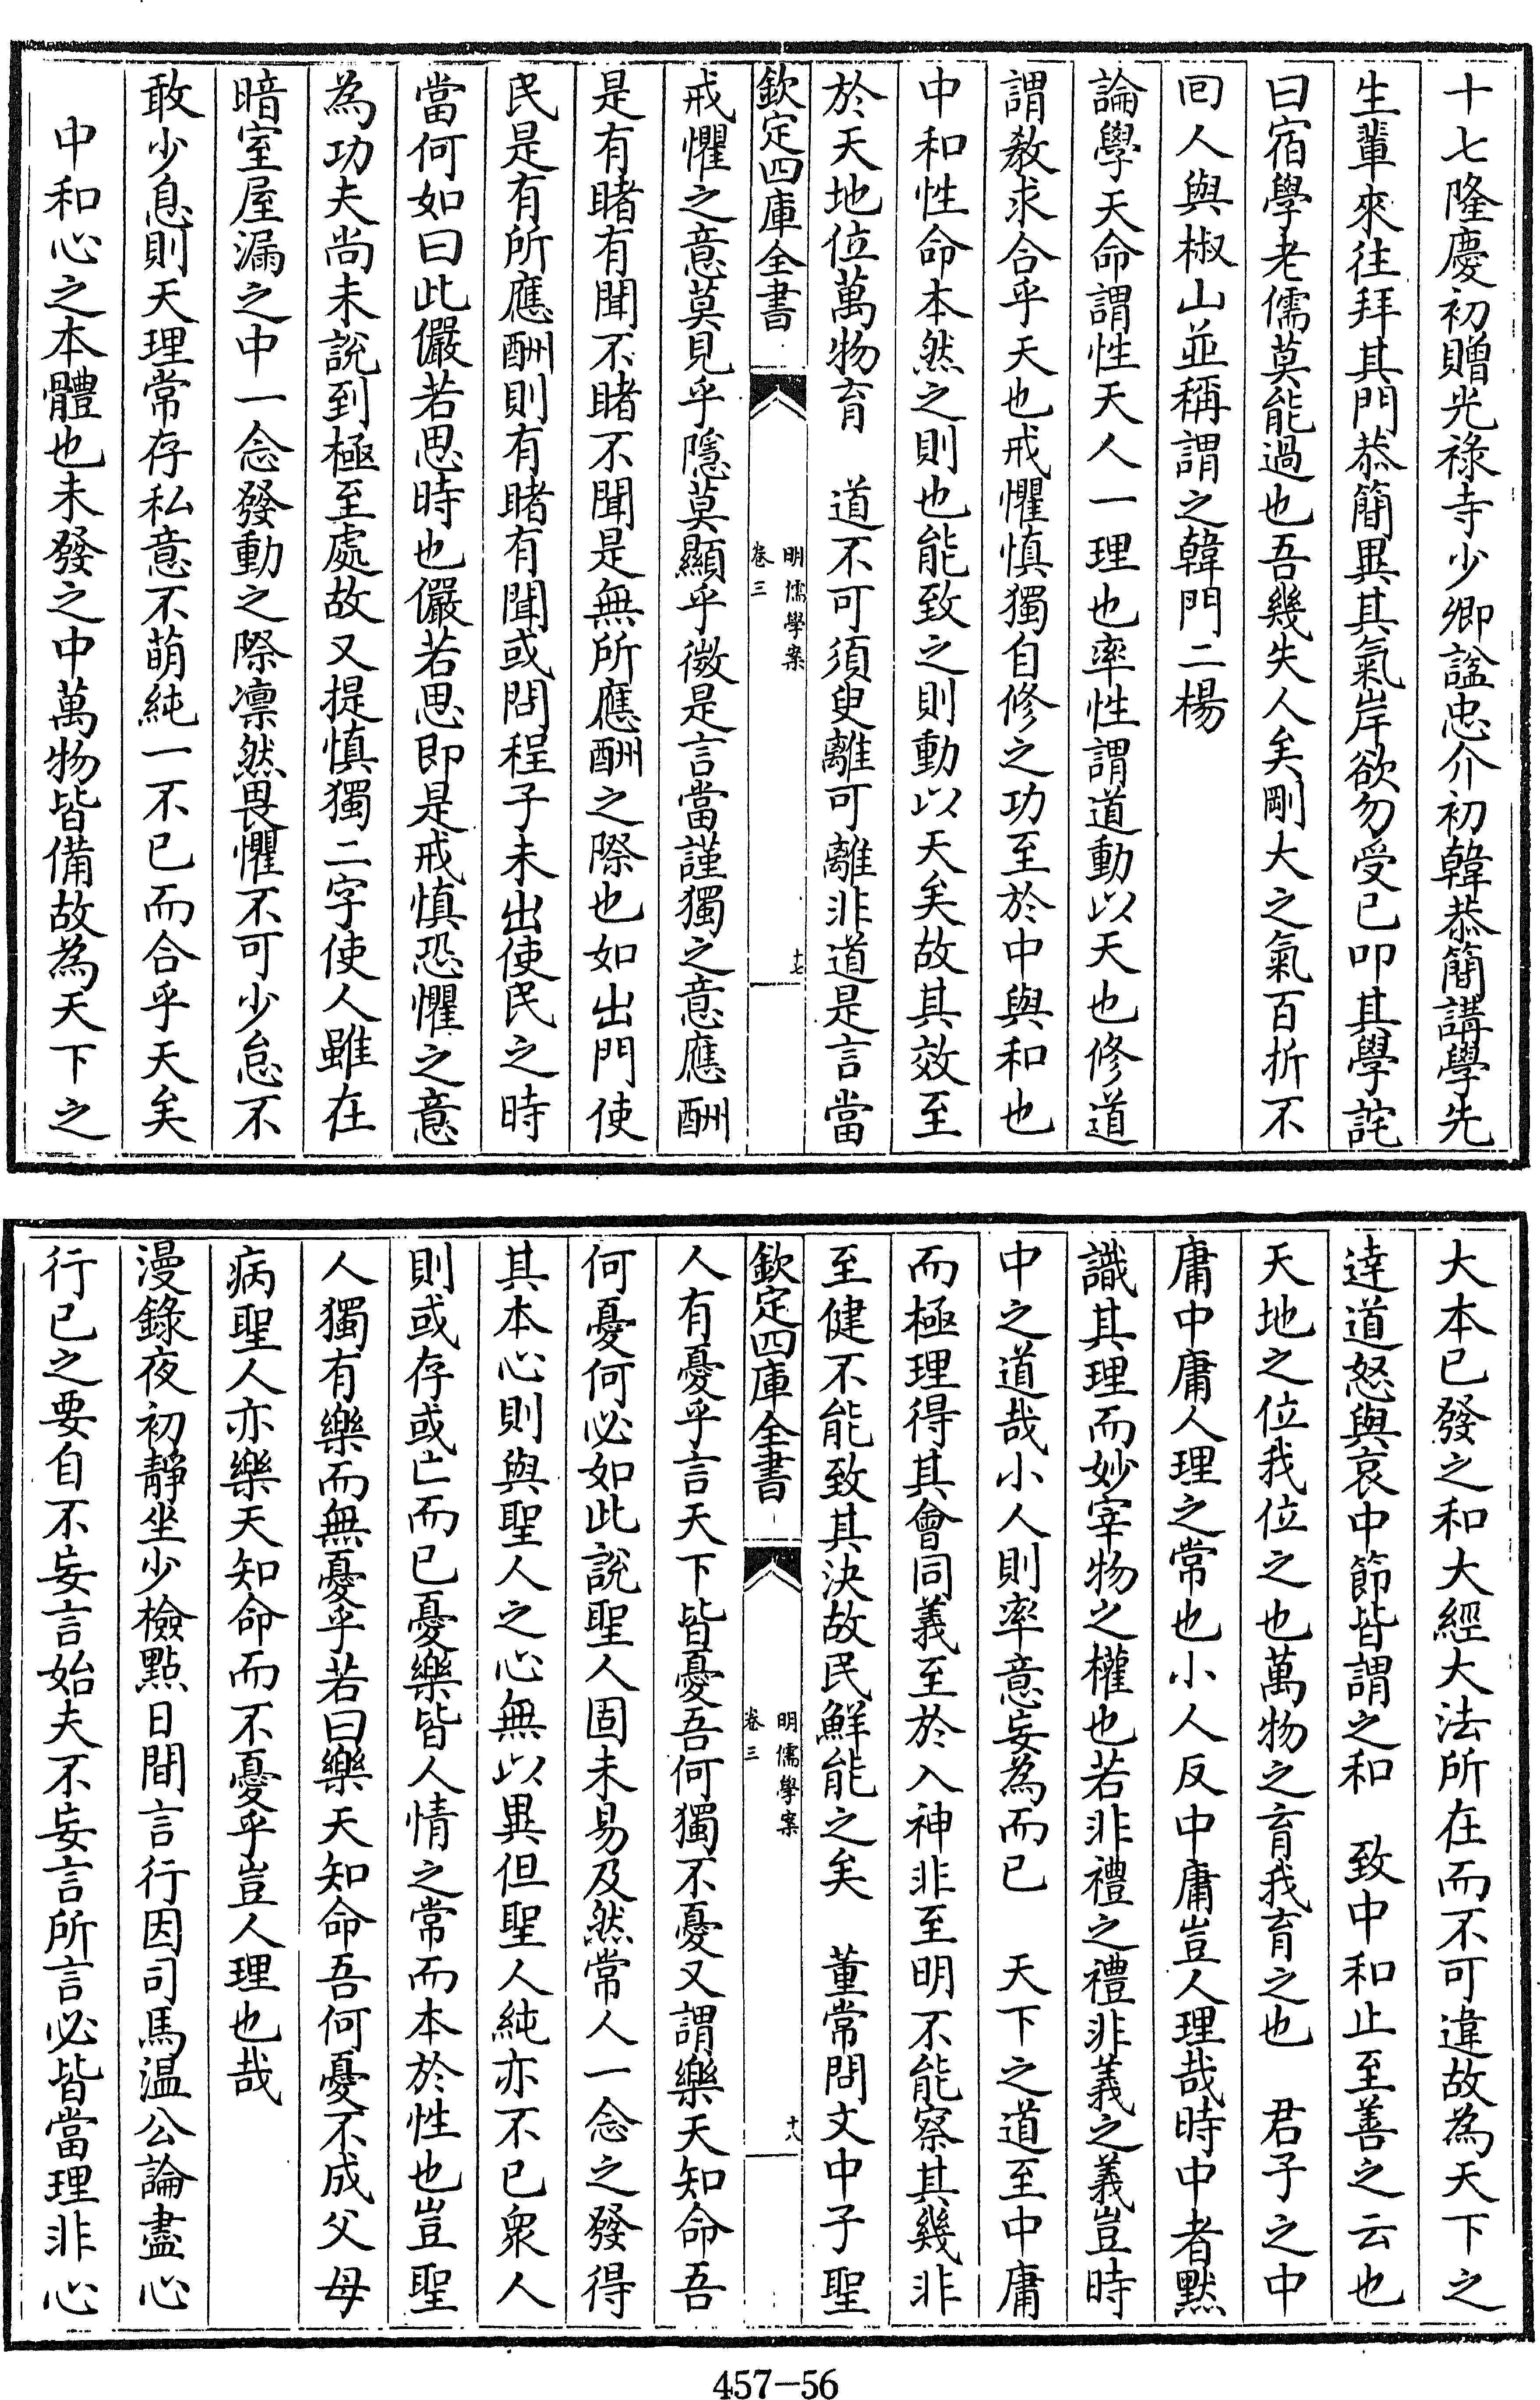 十七隆慶初贈光祿寺少卿諡忠介初韓恭簡講學先
生輩來往拜其門恭簡異其氣岸欲勿受已叩其學詫
曰宿學老儒莫能過也吾幾失人矣剛大之氣百折不
回人與椒山並稱謂之韓門二楊
論學天命謂性天人一理也率性謂道動以天也修道
謂教求合乎天也戒懼慎獨自修之功至於中與和也
中和性命本然之則也能致之則動以天矣故其效至
於天地位萬物育　道不可須臾離可離非道是言當
欽定四庫全書
明儒學案
卷三
十七
戒懼之意莫見乎隱莫顯乎微是言當謹獨之意應酬
是有睹有聞不睹不聞是無所應酬之際也如出門使
民是有所應酬則有睹有聞或問程子未出使民之時
當何如曰此儼若思時也儼若思即是戒慎恐懼之意
為功夫尚未說到極至處故又提慎獨二字使人雖在
暗室屋漏之中一念發動之際凛然畏懼不可少怠不
敢少息則天理常存私意不萌純一不已而合乎天矣
中和心之本體也未發之中萬物皆備故為天下之
大本已發之和大經大法所在而不可違故為天下之
達道怒與哀中節皆謂之和　致中和止至善之云也
天地之位我位之也萬物之育我育之也　君子之中
庸中庸人理之常也小人反中庸豈人理哉時中者黙
識其理而妙宰物之權也若非禮之禮非義之義豈時
中之道哉小人則率意妄為而已　天下之道至中庸
而極理得其會同義至於入神非至明不能察其幾非
至健不能致其決故民鮮能之矣　董常問文中子聖
欽定四庫全書
明儒學案
卷三
十八
人有憂乎言天下皆憂吾何獨不憂又謂樂天知命吾
何憂何必如此說聖人固未易及然常人一念之發得
其本心則與聖人之心無以異但聖人純亦不已衆人
則或存或亡而已憂樂皆人情之常而本於性也豈聖
人獨有樂而無憂乎若曰樂天知命吾何憂不成父母
病聖人亦樂天知命而不憂乎豈人理也哉
漫錄夜初靜坐少檢點日間言行因司馬温公論盡心
行已之要自不妄言始夫不妄言所言必皆當理非心
457-56